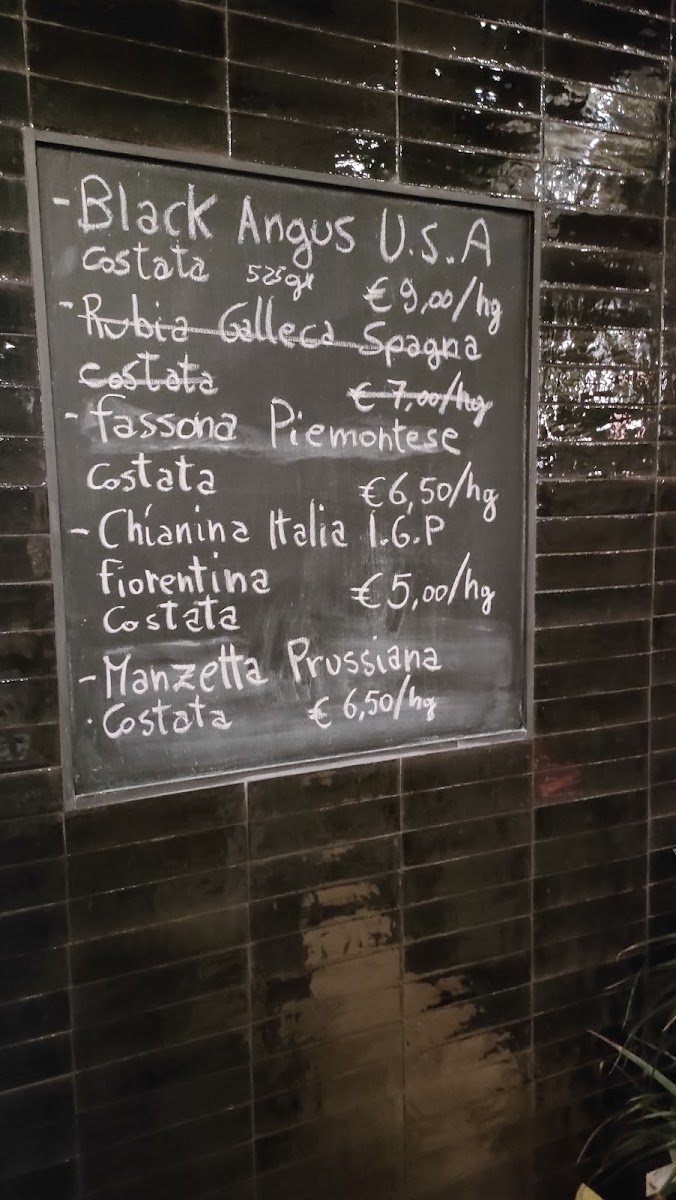 - Black Angus U.S.A
Costata 525gr
€ 9,00/hg
- Rubia Galleca Spagna
costata € 7,00/hg
- Fassona Piemontese
Costata €6,50/hg
- Chianina Italia I.G.P
fiorentina €5,00/hg
Costata
- Manzetta Prussiana
· Costata € 6,50/hg